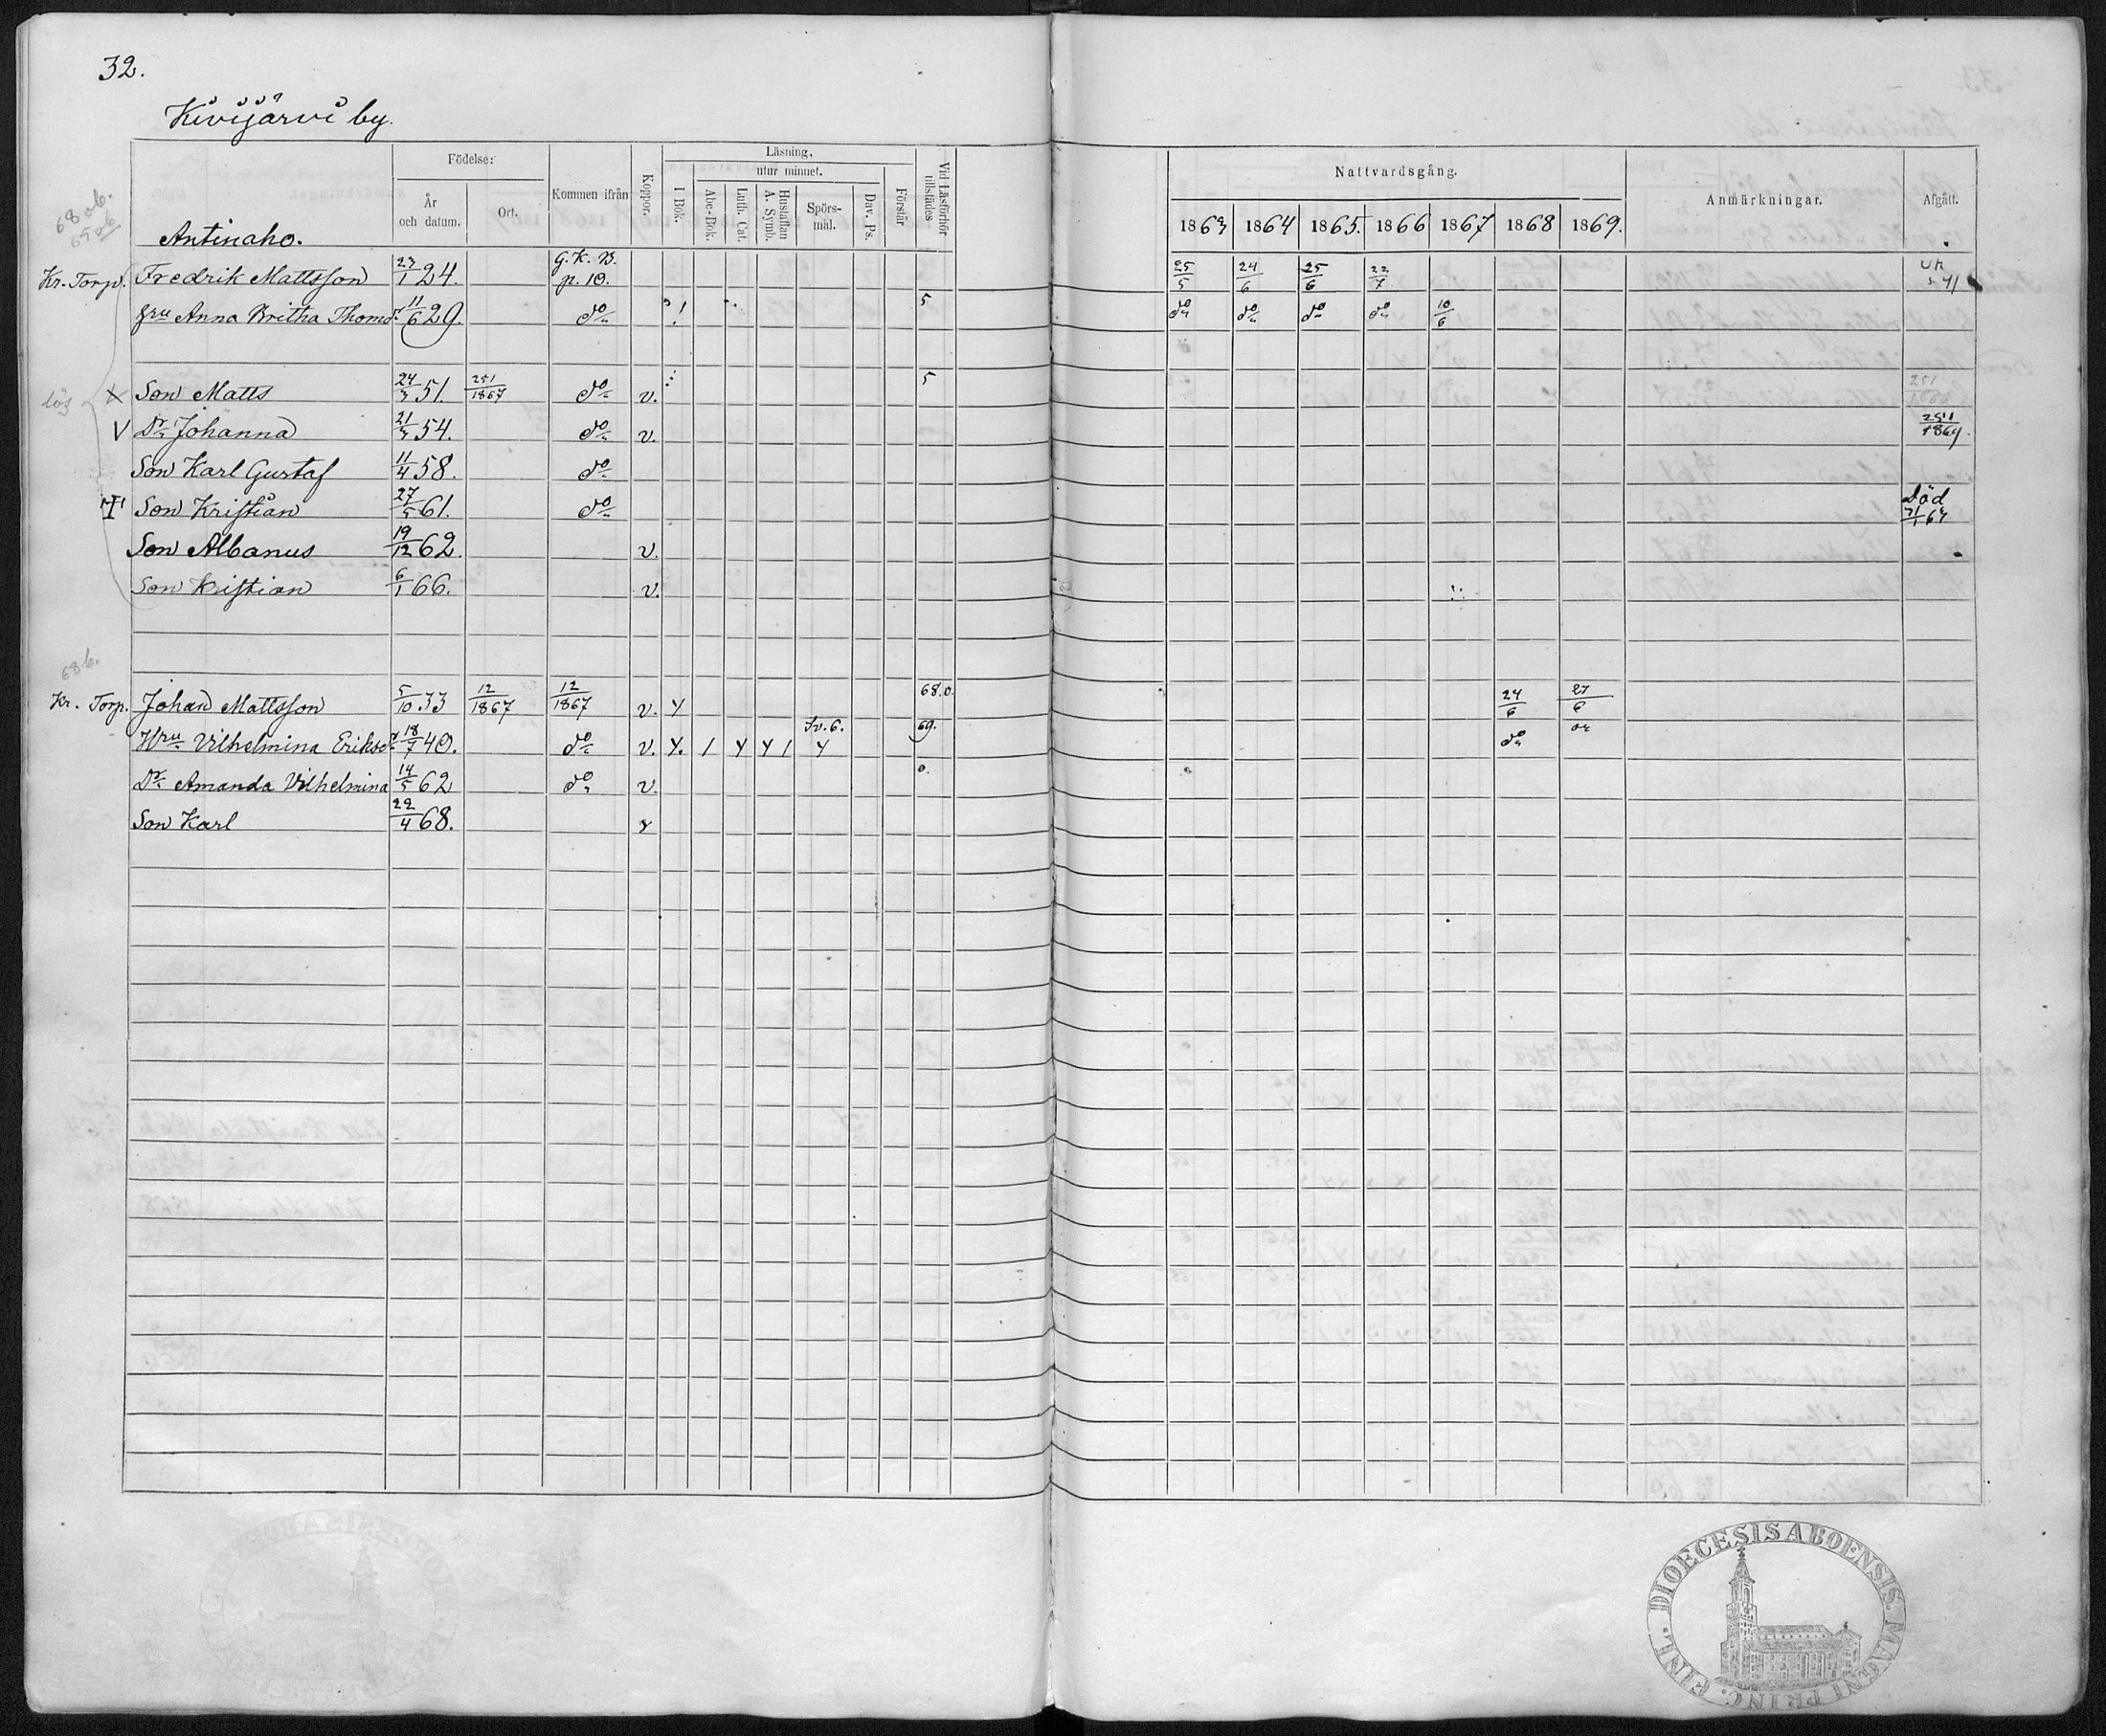 32.
Kivijärvi by.
Födelse:
År och datum.
Ort.
Kommen ifrån
Koppor.
Läsning.
I Bok.
utur minnet.
Abc-Bok.
Luth. Cat.
Hustaflan A. Symb.
Spörs-mål.
Dav. Ps.
Förstår
Vid Läsförhör tillstädes
Nattvardsgång.
1863 1864 1865. 1866 1867 1868 1869.
Anmärkningar.
Afgått.
Antinaho.
Kr. Torp. Fredrik Mattsson 23/1 24. G. K. B. p. 10. 25/5 24/6 25/6 22/7
Hru Anna Britha Thomsdr 11/6 29. do 5 do do do do 10/6
lös Son Matts 24/3 51. 251/1867 do v. 5
V Dr Johanna 21/3 54. do v. 251/1869.
Son Karl Gustaf 11/4 58. do
Son Kristian 27/5 61. do död
Son Albanus 19/12 62. v.
Son Kristian 6/1 66. v.
68 b.
Kr. Torp. Johan Mattsson 5/10 33 12/1867 12/1867 v. Y 68.0. 24/6 27/6
Hru Vilhelmina Eriksdr 18/7 40. do v. Y. / Y Y / Sv. 6. Y 69. do
Dr Amanda Vilhelmina 14/5 62 do v. 0.
Son Karl 22/4 68.
DIOECESIS ABOENSIS. MAGNI PRINC. FINL.